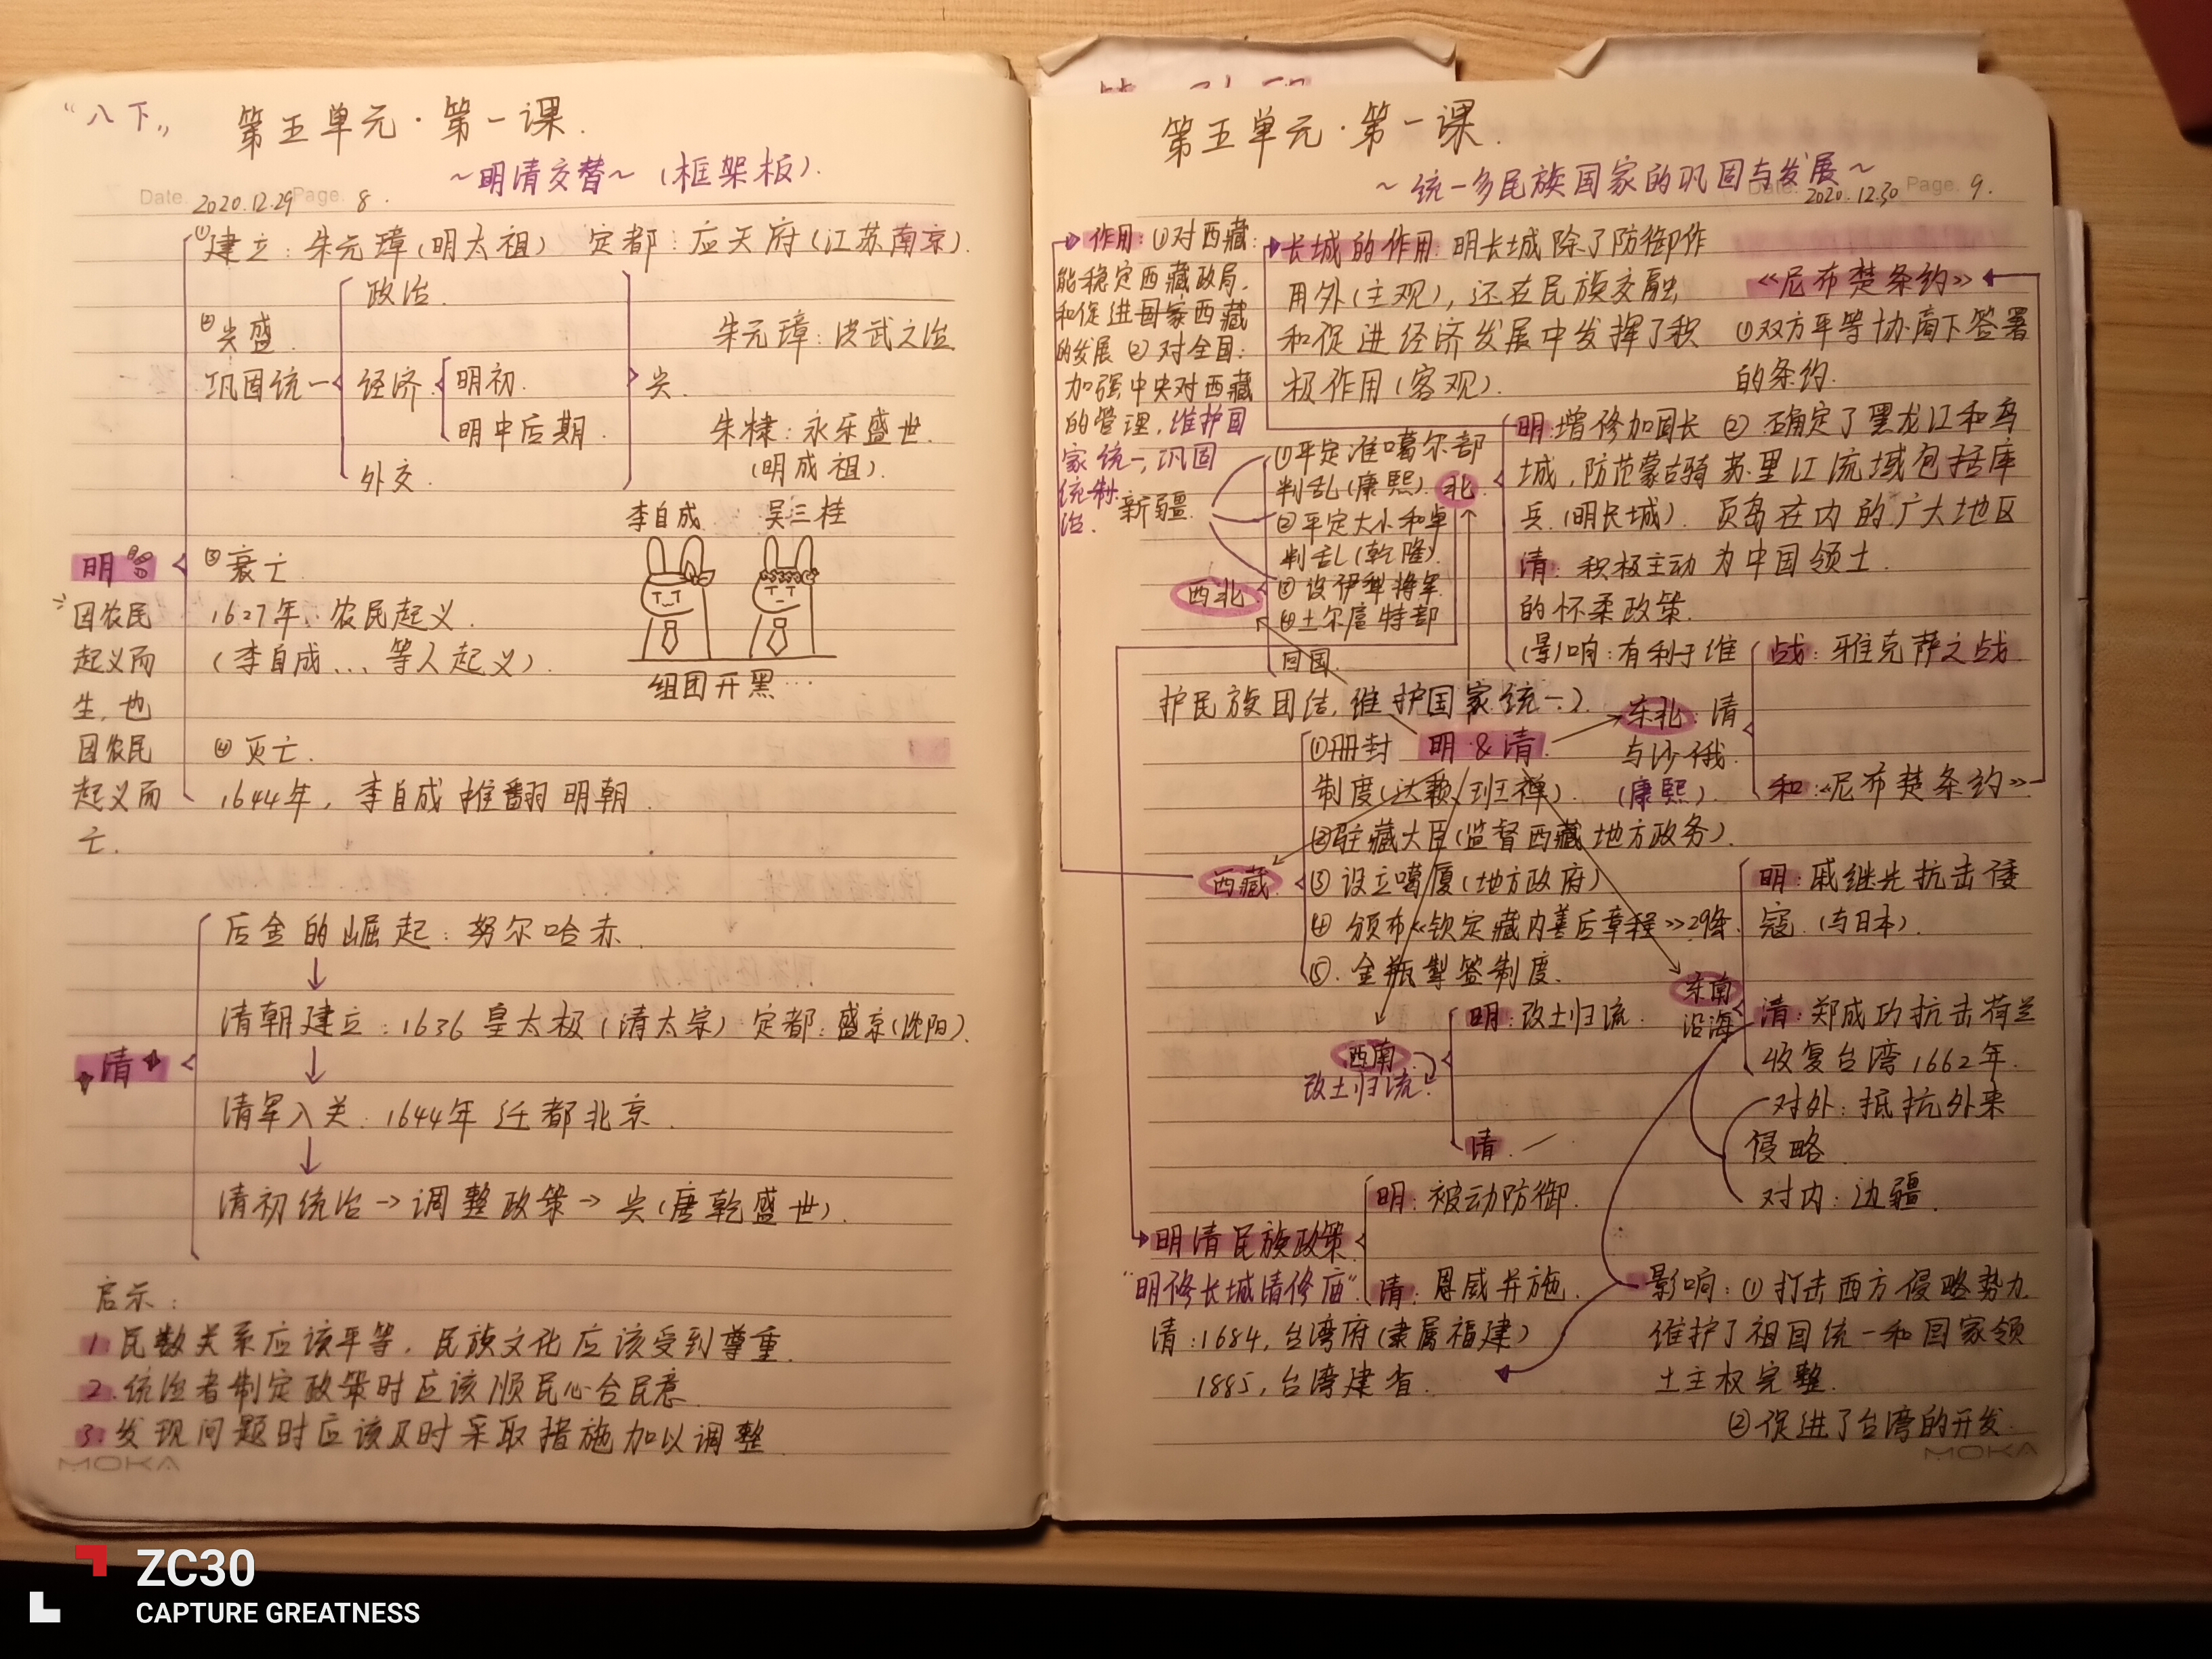 “八下”
第五单元·第一课.
~明清交替~（框架板）.
Date. 2020.12.29 Page. 8.
①建立：朱元璋(明太祖) 定都：应天府(江苏南京).
政治.
②兴盛.
巩固统一
经济
明初.
明中后期.
外交.
兴.
朱元璋：洪武之治
朱棣：永乐盛世.
(明成祖).
李自成 吴三桂
组团开黑…
明
因农民
起义而
生,也
因农民
起义而
亡.
③衰亡
1627年：农民起义.
(李自成...等人起义).
④灭亡.
1644年，李自成推翻明朝.
清
后金的崛起：努尔哈赤.
↓
清朝建立：1636 皇太极(清太宗) 定都：盛京(沈阳).
↓
清军入关：1644年 迁都北京.
↓
清初统治→调整政策→兴(唐乾盛世).
启示：
1.民数关系应该平等，民族文化应该受到尊重.
2.统治者制定政策时应该顺民心合民意.
3.发现问题时应该及时采取措施加以调整.
MOKA
第五单元·第一课.
~统一多民族国家的巩固与发展~
Date. 2020.12.30 Page. 9.
作用：①对西藏：
能稳定西藏政局,
和促进国家西藏
的发展 ②对全国：
加强中央对西藏
的管理,维护国
家统一,巩固
统制
治.
长城的作用：明长城除了防御作
用外(主观)，还在民族交融
和促进经济发展中发挥了积
极作用(客观).
《尼布楚条约》
①双方平等协商下签署
的条约.
②确定了黑龙江和乌
苏里江流域包括库
页岛在内的广大地区
为中国领土.
北
明：增修加固长
城,防范蒙古骑
兵.(明长城).
清：积极主动
的怀柔政策.
(影响：有利于维
护民族团结,维护国家统一.)
新疆
西北
①平定准噶尔部
判乱(康熙).
②平定大小和卓
判乱(乾隆).
③设伊犁将军
④土尔扈特部
回国.
明&清
东北：清
与沙俄.
(康熙).
战：雅克萨之战
和：《尼布楚条约》
西藏
①册封
制度(达赖/班禅).
②驻藏大臣(监督西藏地方政务).
③设立噶厦(地方政府)
④颁布《钦定藏内善后章程》29条
⑤.金瓶掣签制度.
东南
沿海
明：戚继光抗击倭
寇.(与日本).
清：郑成功抗击荷兰
收复台湾1662年.
对外：抵抗外来
侵略.
对内：边疆.
西南
改土归流.
明：改土归流.
清.
明清民族政策
“明修长城清修庙”
明：被动防御.
清：恩威并施.
清：1684,台湾府(隶属福建)
1885,台湾建省.
影响：①打击西方侵略势力
维护了祖国统一和国家领
土主权完整.
②促进了台湾的开发.
MOKA
ZC30
CAPTURE GREATNESS